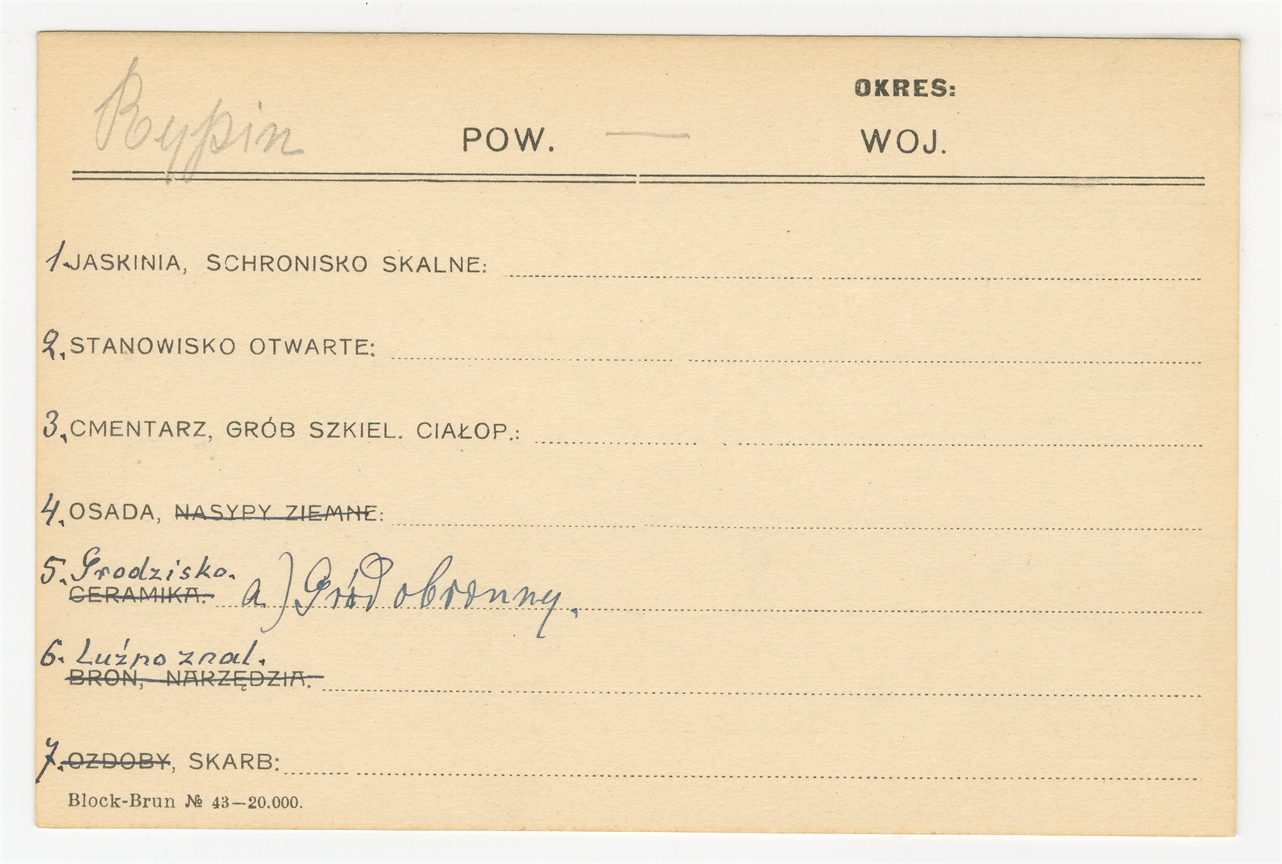 OKRES:
Rypin POW. — WOJ.
1. JASKINIA, SCHRONISKO SKALNE:
2. STANOWISKO OTWARTE:
3. CMENTARZ, GRÓB SZKIEL. CIAŁOP.:
4. OSADA, NASYPY ZIEMNE:
5. Grodzisko.
CERAMIKA: a) Gród obronny.
6. Luźno znal.
BROŃ, NARZĘDZIA:
7. OZDOBY, SKARB:
Block-Brun № 43—20.000.